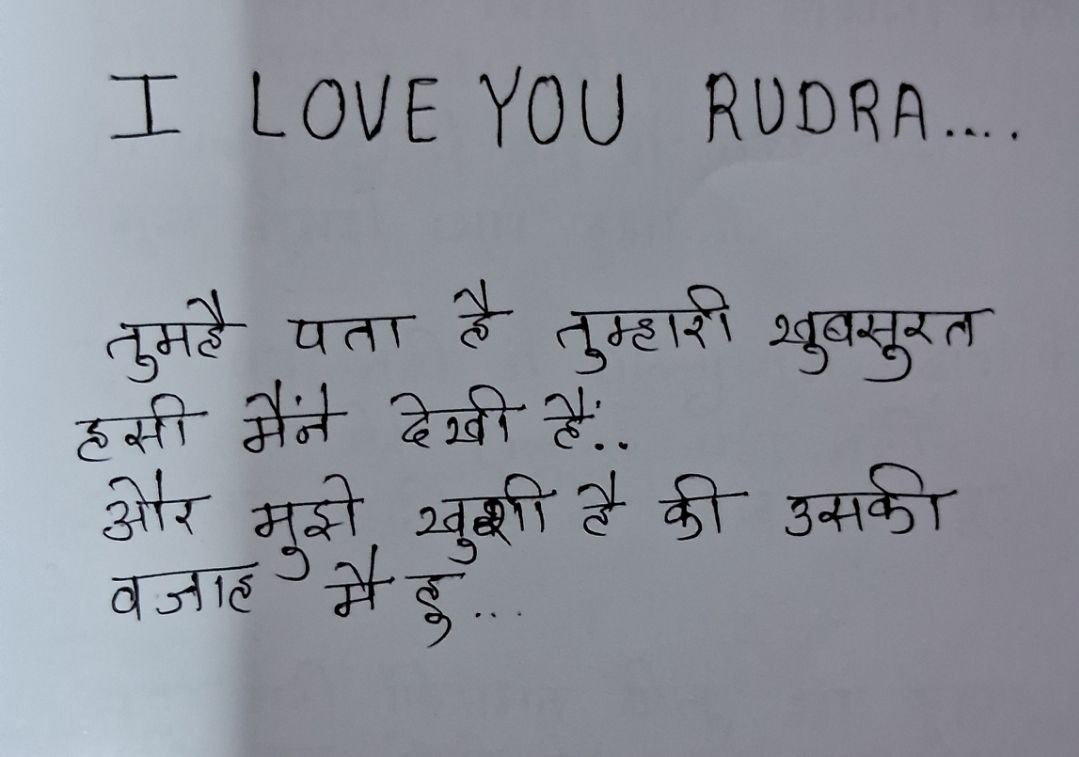 I LOVE YOU RUDRA....
तुमहै पता है तुम्हारी खुबसुरत
हसी मैंने देखी हैं..
और मुझे खुशी है की उसकी
वजाह मै हु...